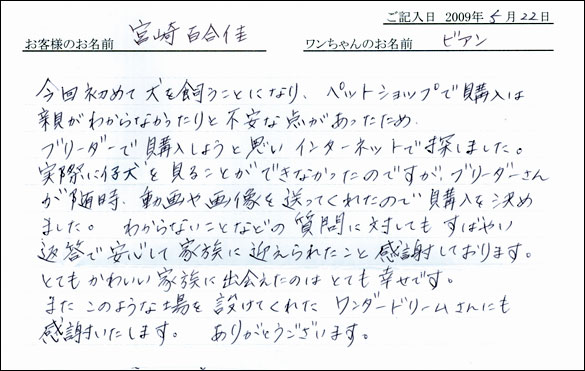 ご記入日 2009年5月22日
お客様のお名前 宮崎 百合佳 ワンちゃんのお名前 ビアン
今回初めて犬を飼うことになり、ペットショップで購入は
親がわからなかったりと不安な点があったため
ブリーダーで購入しようと思いインターネットで探しました。
実際に仔犬を見ることができなかったのですが、ブリーダーさん
が随時、動画や画像を送ってくれたので購入を決め
ました。 わからないことなどの質問に対しても すばやい
返答で安心して家族に迎えられたこと感謝しております。
とてもかわいい家族に出会えたのはとても幸せです。
また このような場を設けてくれた ワンダードリームさんにも
感謝いたします。 ありがとうございます。